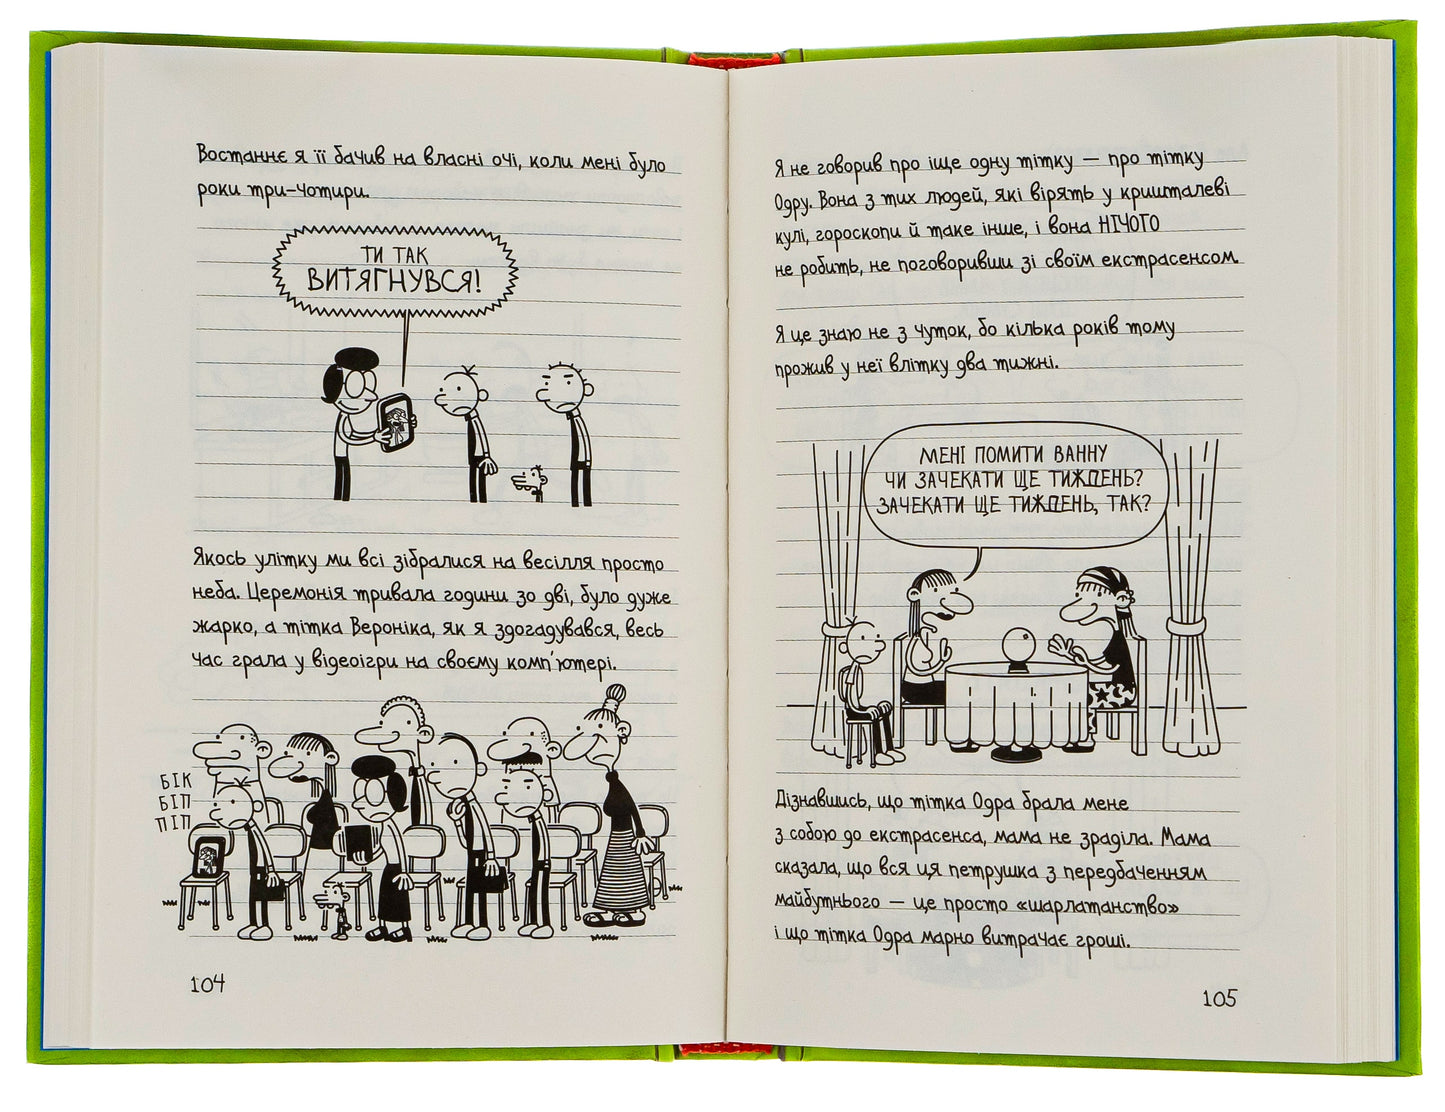 Востаннє я її бачив на власні очі, коли мені було
роки три-чотири.
ТИ ТАК
ВИТЯГНУВСЯ!
Якось улітку ми всі зібралися на весілля просто
неба. Церемонія тривала години зо дві, було дуже
жарко, а тітка Вероніка, як я здогадувався, весь
час грала у відеоігри на своєму комп'ютері.
БІК
БІП
ПІП
104
Я не говорив про іще одну тітку — про тітку
Одру. Вона з тих людей, які вірять у кришталеві
кулі, гороскопи й таке інше, і вона НІЧОГО
не робить, не поговоривши зі своїм екстрасенсом.
Я це знаю не з чуток, бо кілька років тому
прожив у неї влітку два тижні.
МЕНІ ПОМИТИ ВАННУ
ЧИ ЗАЧЕКАТИ ЩЕ ТИЖДЕНЬ?
ЗАЧЕКАТИ ЩЕ ТИЖДЕНЬ, ТАК?
Дізнавшись, що тітка Одра брала мене
з собою до екстрасенса, мама не зраділа. Мама
сказала, що вся ця петрушка з передбаченням
майбутнього — це просто «шарлатанство»
і що тітка Одра марно витрачає гроші.
105